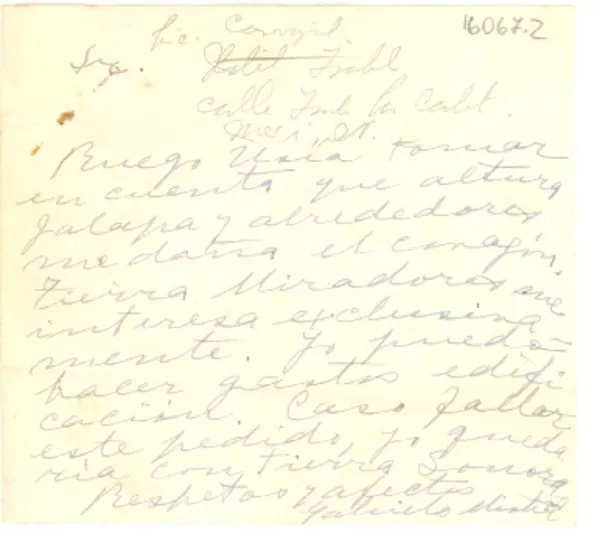 16067.2
Lic.
Sra.
calle
Ruego Usía tomar
en cuenta que altura
Jalapa y alrededores
me daña el corazón.
Tierra Miradores me
interesa exclusiva
mente. Yo puedo
hacer gastos edifi
cación. Caso fallar
este pedido, yo queda
ría con tierra Sonora
Respetos y afectos
Gabriela Mistral